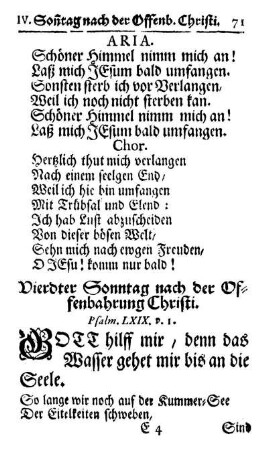 IV. Soñtag nach der Offenb. Christi. 71
ARIA.
Schöner Himmel nimm mich an!
Laß mich JEsum bald umfangen.
Sonsten sterb ich vor Verlangen,
Weil ich noch nicht sterben kan.
Schöner Himmel nimm mich an!
Laß mich JEsum bald umfangen.
Chor.
Hertzlich thut mich verlangen
Nach einem seelgen End/
Weil ich hie bin umfangen
Mit Trübsal und Elend:
Ich hab Lust abzuscheiden
Von dieser bösen Welt/
Sehn mich nach ewgen Freuden/
O JEsu! komm nur bald!
Vierdter Sonntag nach der Of-
fenbahrung Christi.
Psalm. LXIX. v. 1.
GOTT hilff mir / denn das
Wasser gehet mir bis an die
Seele.
So lange wir noch auf der Kummer-See
Der Eitelkeiten schweben/
E 4 Sind